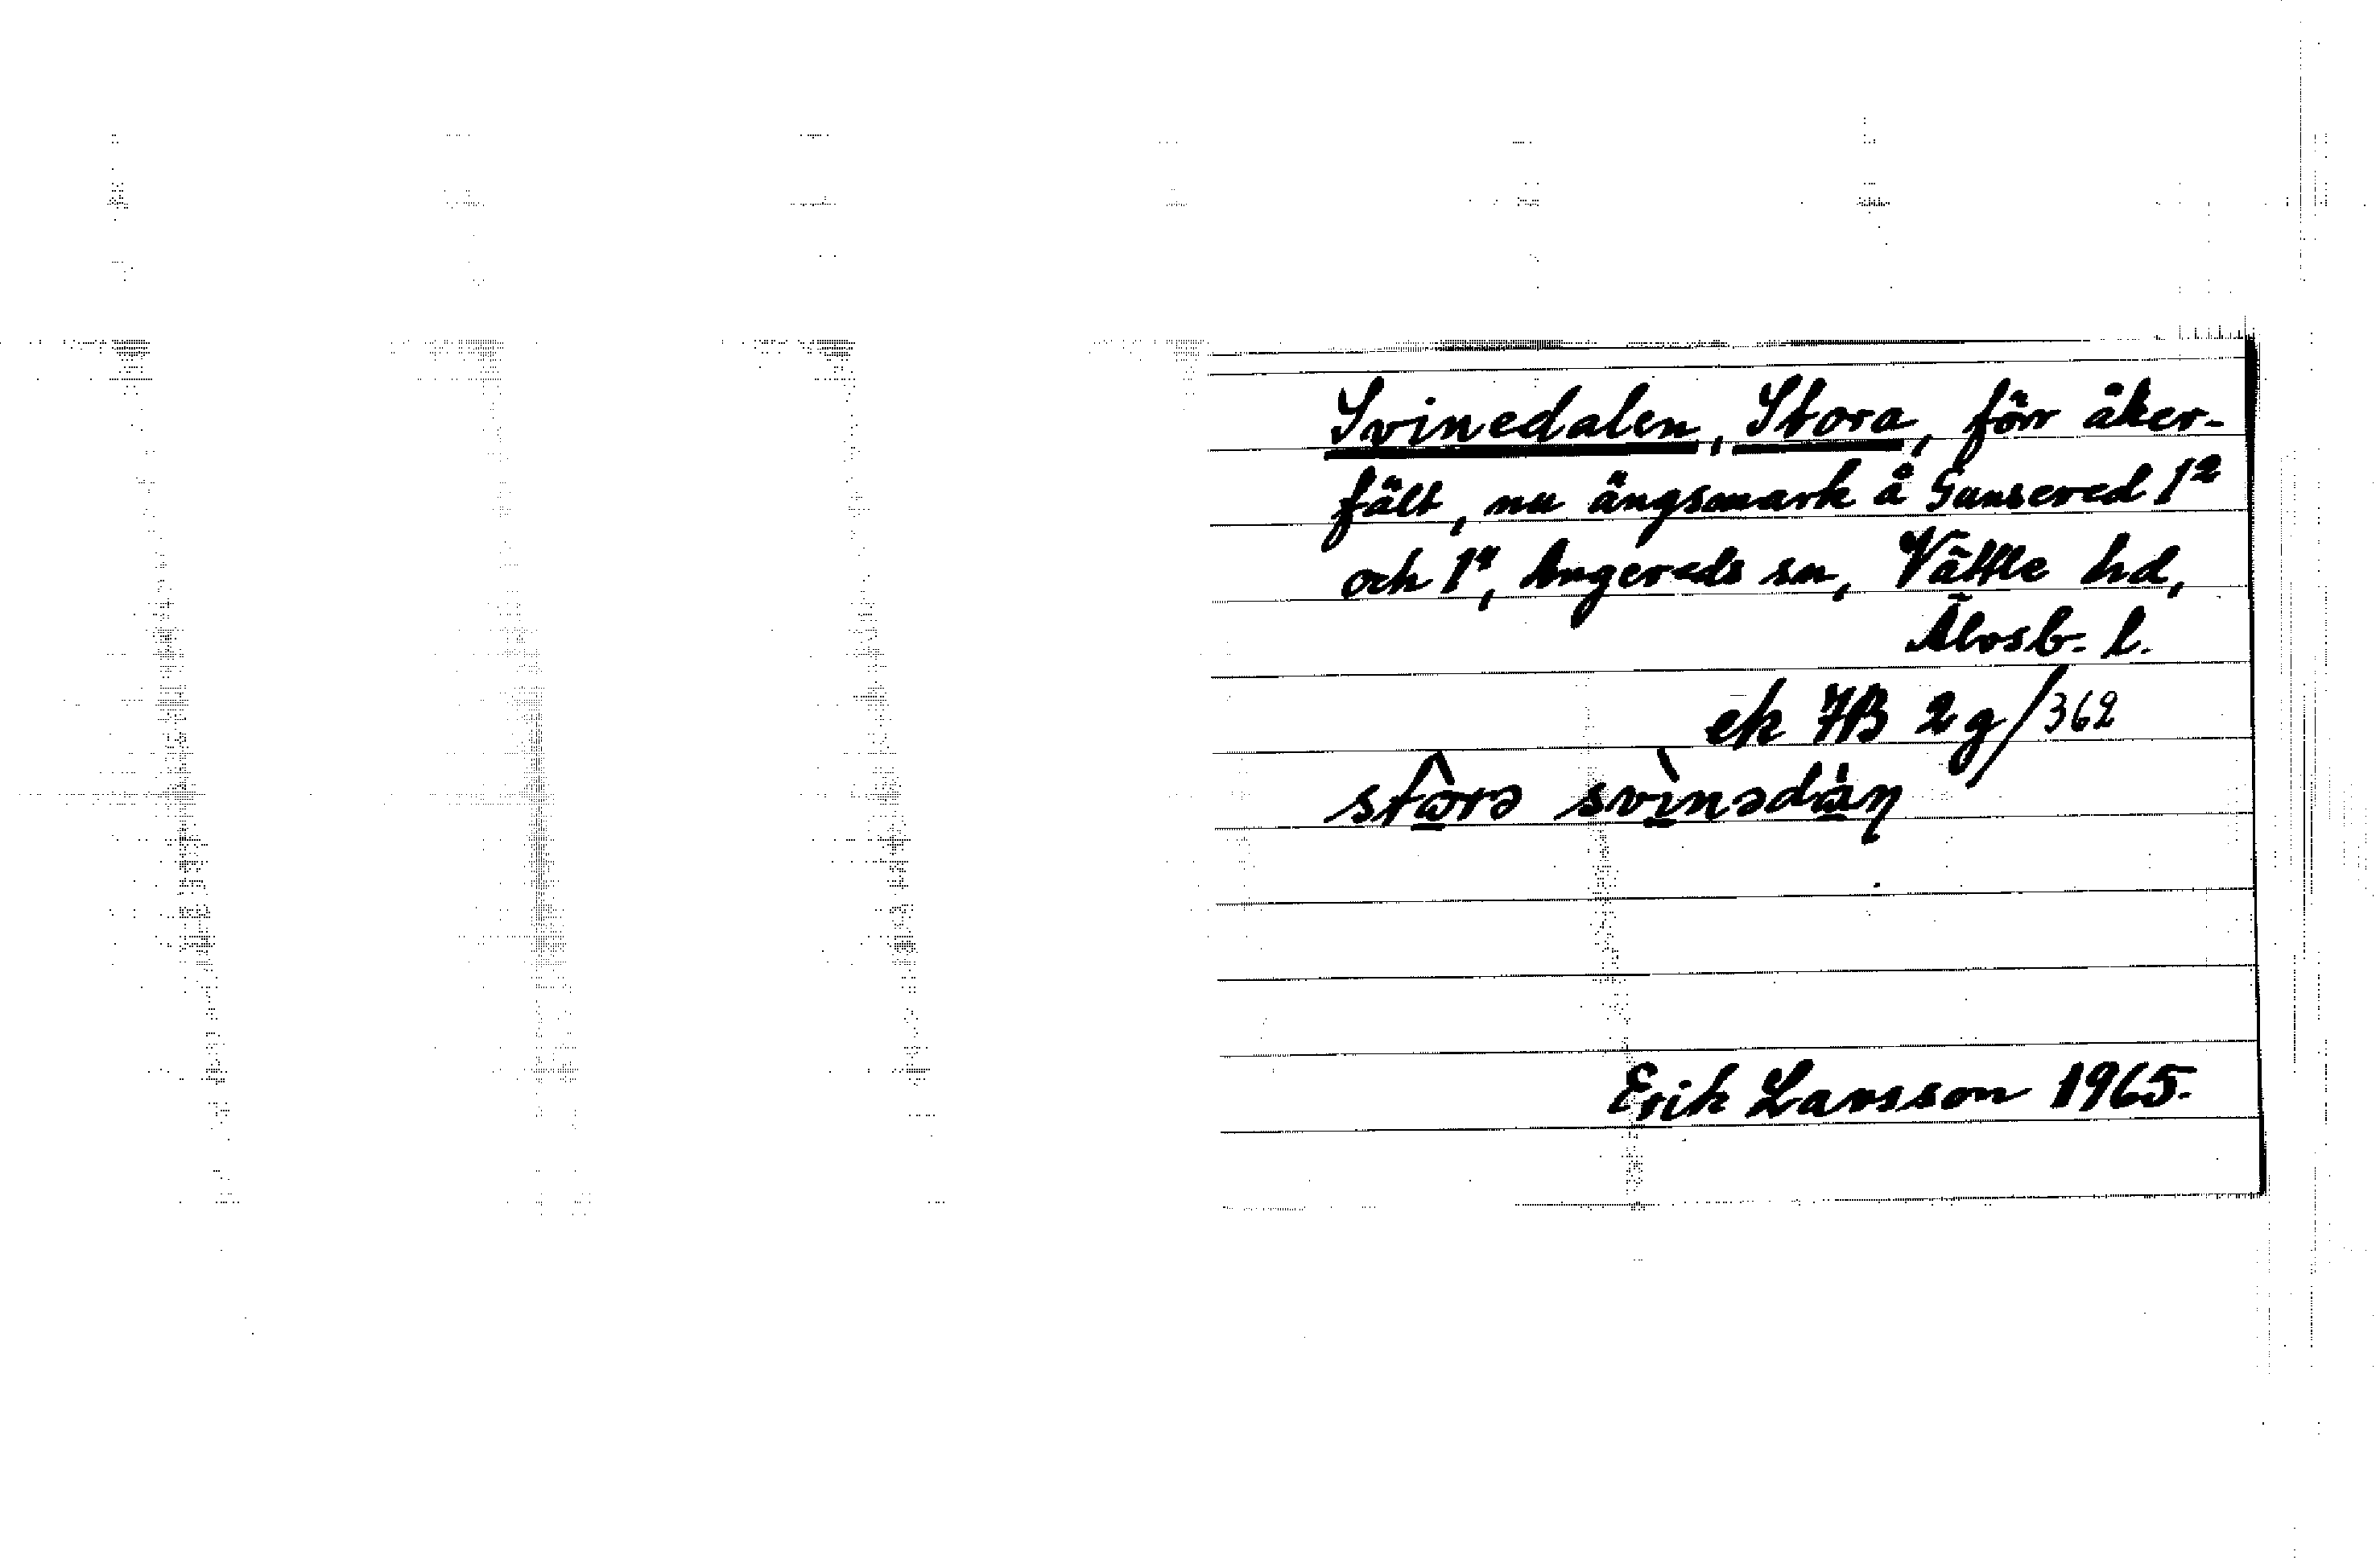 Svinedalen, Stora, förr åker-
fält, nu ängsmark å Gunsered 1²
och 1⁴, Angereds sn, Vättle hd,
Älvsb. l.
ek 7B 2g/362
Erik Larsson 1965.